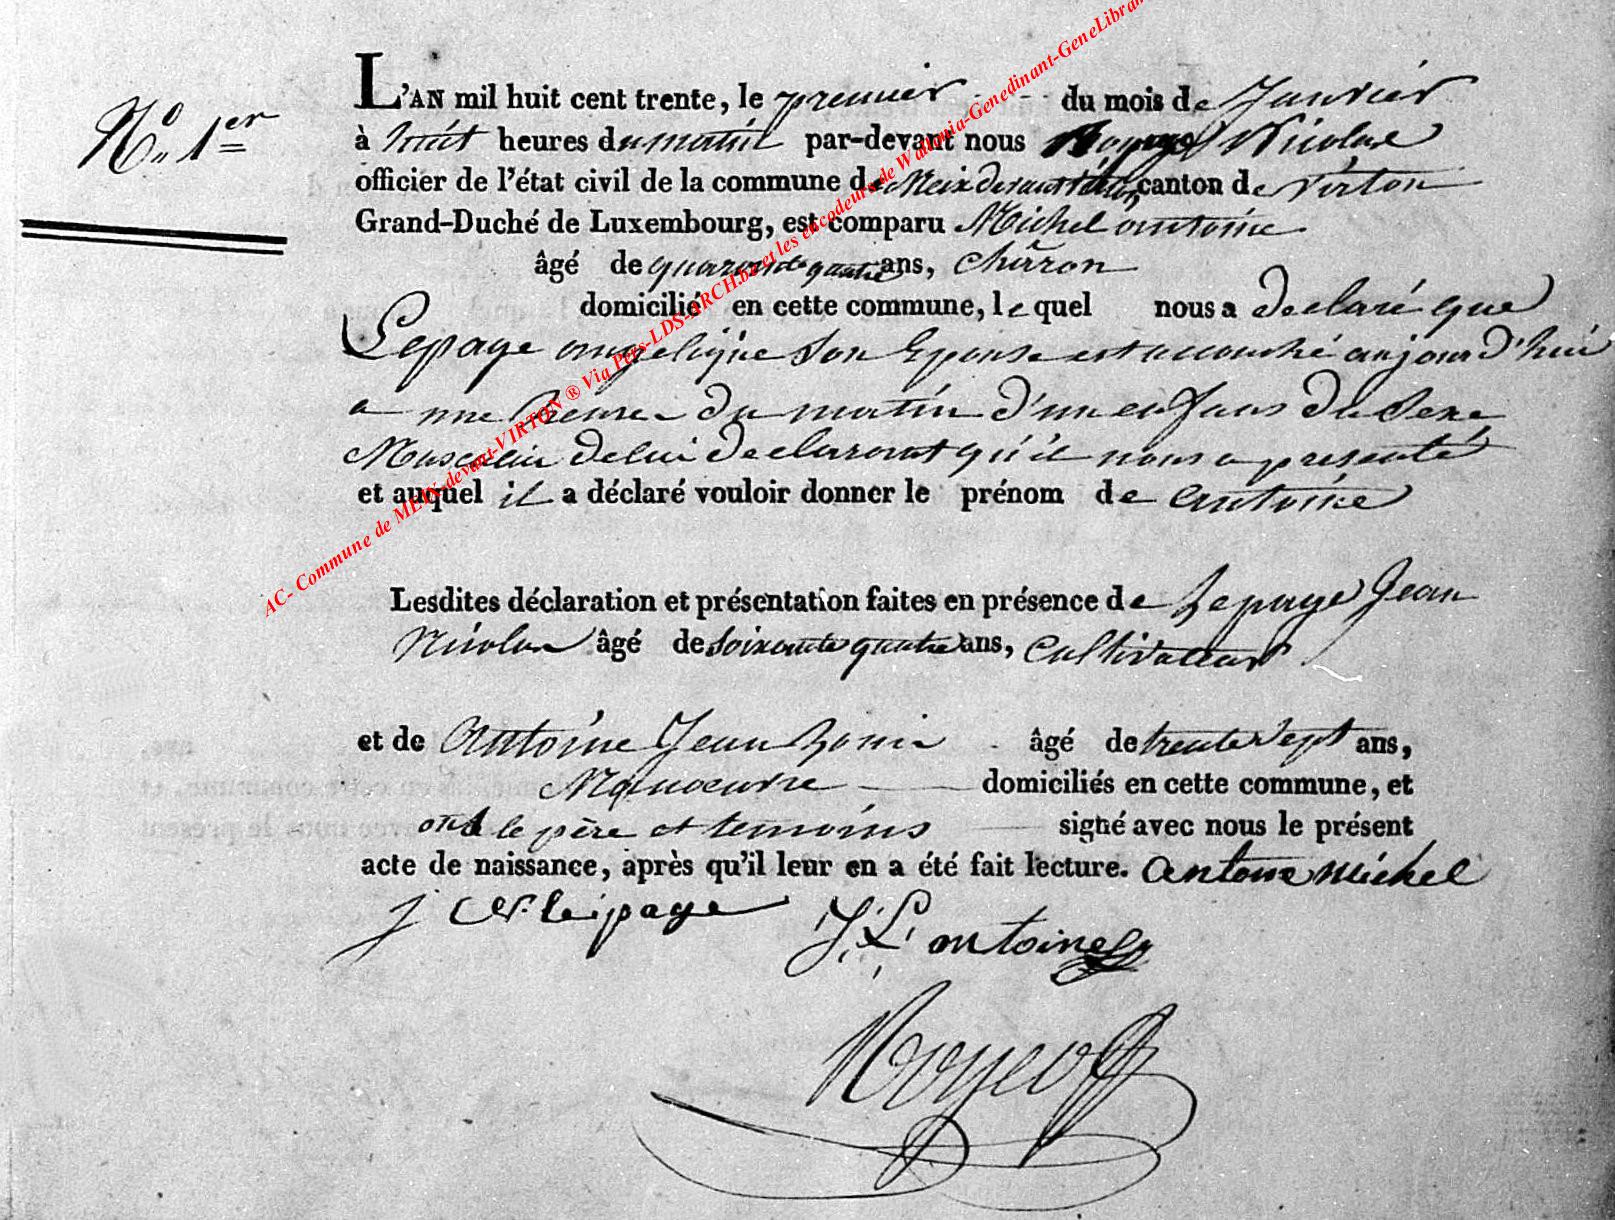 N.º 1.er
L'AN mil huit cent trente, le premier du mois de Janvier
à huit heures du matin par-devant nous Nicolas
officier de l'état civil de la commune de Meix devant Virton, canton de virton
Grand-Duché de Luxembourg, est comparu Michel antoine
âgé de quarante quatre ans, charron
domicilié en cette commune, le quel nous a declaré que
Lepage angelique Son Epouse est accouché aujourd'hui
a une heure du matin d'un enfans du Sexe
Masculin de lui declarant qu'il nous a presenté
et auquel il a déclaré vouloir donner le prénom de antoine
Lesdites déclaration et présentation faites en présence de Lepage Jean
Nicolas âgé de soixante quatre ans, Cultivateur
et de Antoine Jean Louis âgé de trente Sept ans,
Manoeuvre domiciliés en cette commune, et
ont le père et temoins signé avec nous le présent
acte de naissance, après qu'il leur en a été fait lecture. antoine Michel
j N lepage J. L. antoine
AC- Commune de MEIX-devant-VIRTON ® Via Pers-LDS-ARCH.be et les encodeurs de Wallonia-Genedinant-GeneLibran